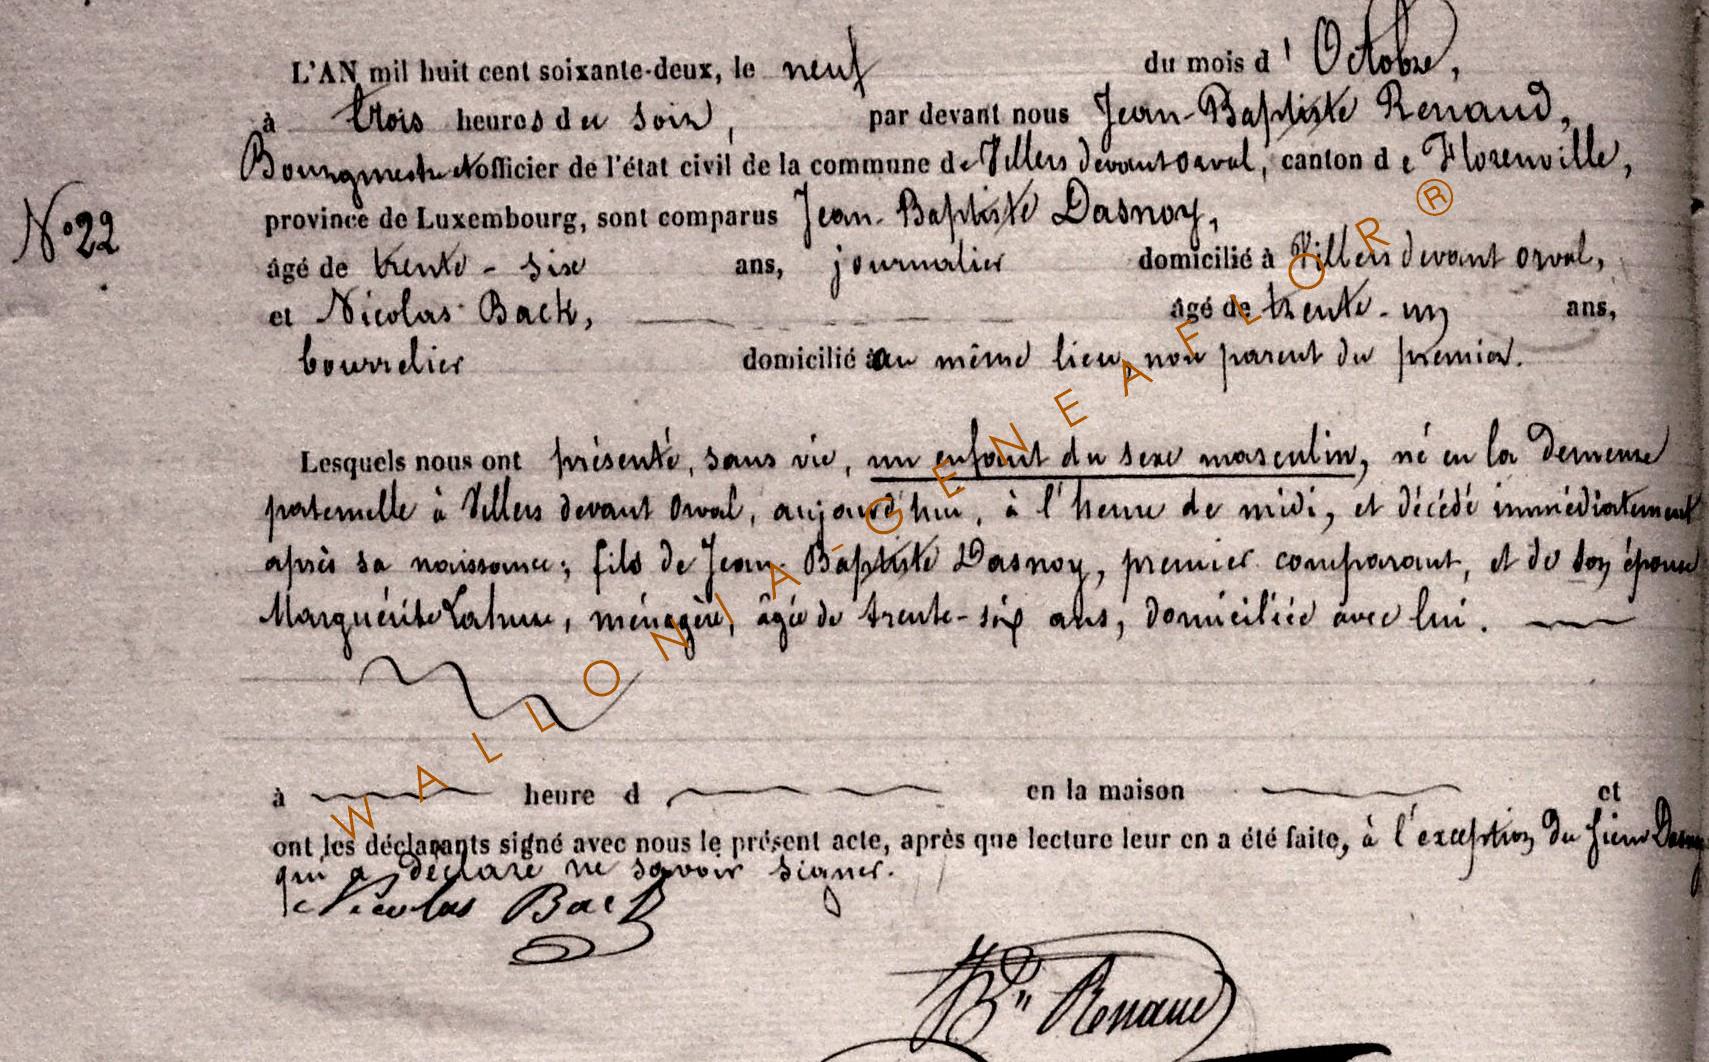 L'AN mil huit cent soixante-deux, le neuf du mois d'Octobre,
à trois heures du soir, par devant nous Jean-Baptiste Renaud,
Bourgmestre et officier de l'état civil de la commune de Villers devant orval, canton de Florenville,
N° 22
province de Luxembourg, sont comparus Jean-Baptiste Dasnoy,
âgé de trente-six ans, journalier domicilié à Villers devant orval,
et Nicolas Back, âgé de trente-un ans,
bourrelier domicilié au même lieu, non parent du premier.
Lesquels nous ont présenté, sans vie, un enfant du sexe masculin, né en la demeure
paternelle à Villers devant Orval, aujourd'hui, à l'heure de midi, et décédé immédiatement
après sa naissance; fils de Jean-Baptiste Dasnoy, premier comparant, et de son épouse
Marguérite Lahure, ménagère, âgée de trente-six ans, domiciliée avec lui.
à heure d en la maison et
ont les déclarants signé avec nous le présent acte, après que lecture leur en a été faite, à l'exception du sieur Dasnoy
qui a déclaré ne savoir signer.
Nicolas Back
JBte Renaud
WALLONIA-GENEAFLOR ®